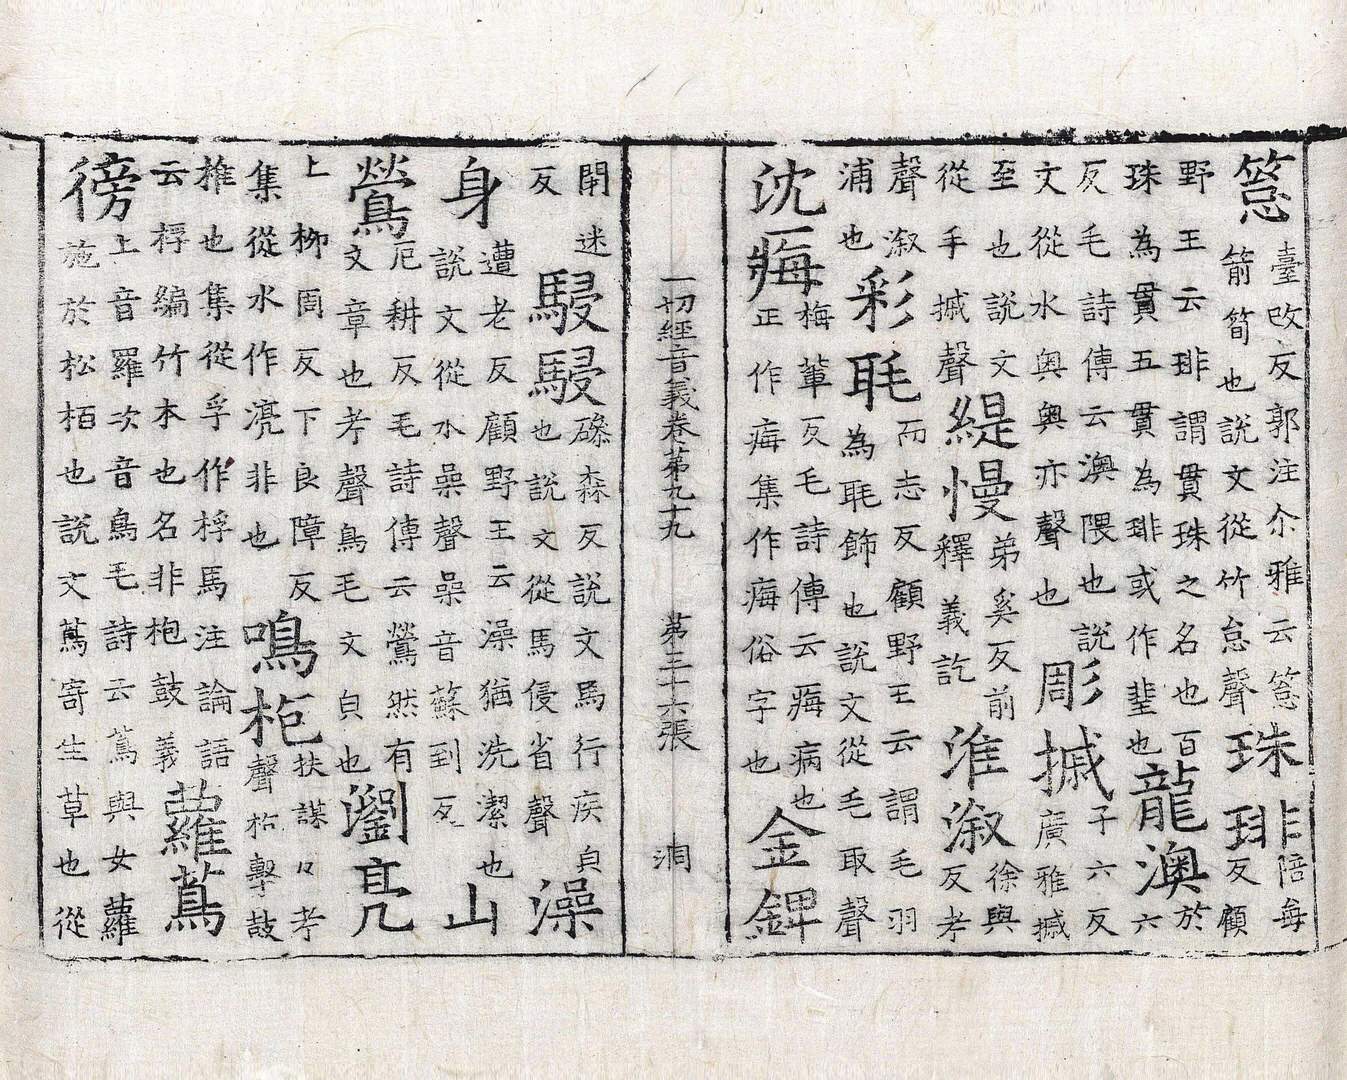 䈚臺改反郭注尒雅云䈚箭筍也說文從竹怠聲珠琲陪每反顧
野王云琲謂貫珠之名也百珠為貫五貫為琲或作也龍澳於六
反毛詩傳云澳隈也說文從水奧奧亦聲也彫摵子六反廣雅摵
至也說文從手摵聲緹慢弟奚反前釋義訖淮溆徐與反考
聲溆浦也彩毦而志反顧野王云謂毛羽為毦飾也說文從毛取聲
沈痗梅輩反毛詩傳云痗病也正作痗集作痗俗字也金錍
一切經音義卷第九十九 第三十六張 洞
閇迷反駸駸磣森反說文馬行疾皃也說文從馬侵省聲澡
身遭老反顧野王云澡猶洗潔也說文從水喿聲喿音蘇到反山
鶯厄耕反毛詩傳云鶯然有文章也考聲鳥毛文皃也瀏亮
上柳周反下良障反集從水作湸非也鳴枹扶謀反考聲枹擊鼓
椎也集從孚作桴馬注論語云桴編竹木也名非枹鼓義蘿蔦
傍上音羅次音鳥毛詩云蔦與女蘿施於松栢也說文蔦寄生草也從